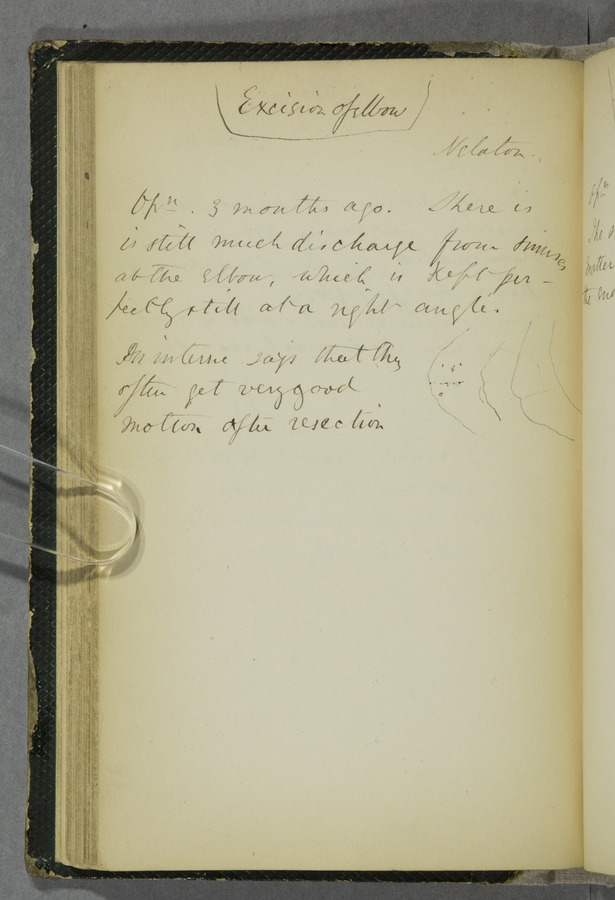 Excision of elbow
Nelaton.
Opn. 3 months ago. There is
is still much discharge from sinuses
at the elbow, which is kept per-
fectly still at a right angle.
interne says that they
often get very good
motion after resection
Opn
the